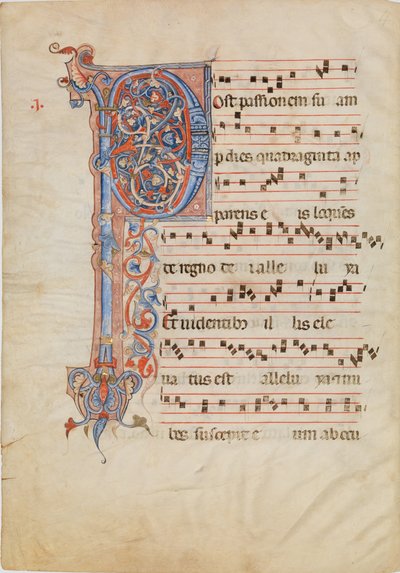 .j.
Post passionem su am
p dies quadraginta ap
parens e is loques
de regno de i alle lu ya
Et uidentib; il lis ele
ua tus est allelu ya
bes suscepit e um ab ocu